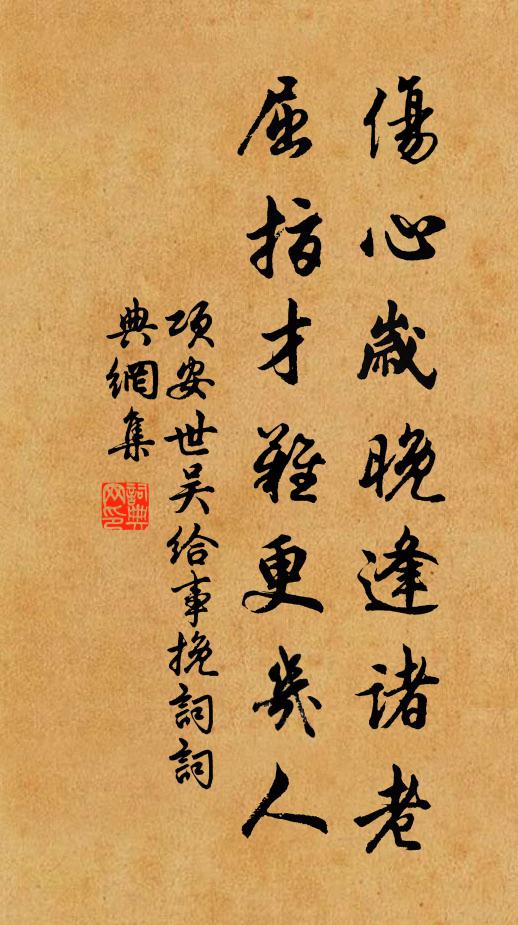 傷心歲晚逢諸老
屈指才難更幾人
項安世吴給事挽詞詞
典網集
詞典
网印